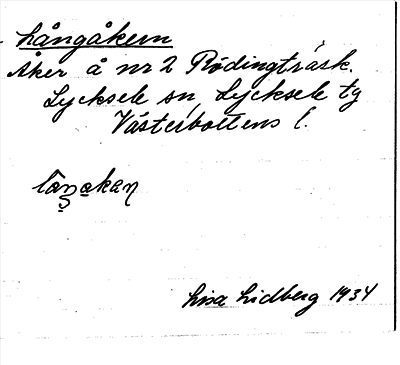 Långåkern
Åker å nr 2 Rödingträsk.
Lycksele sn, Lycksele tg
Västerbottens l.
Lisa Lidberg 1934